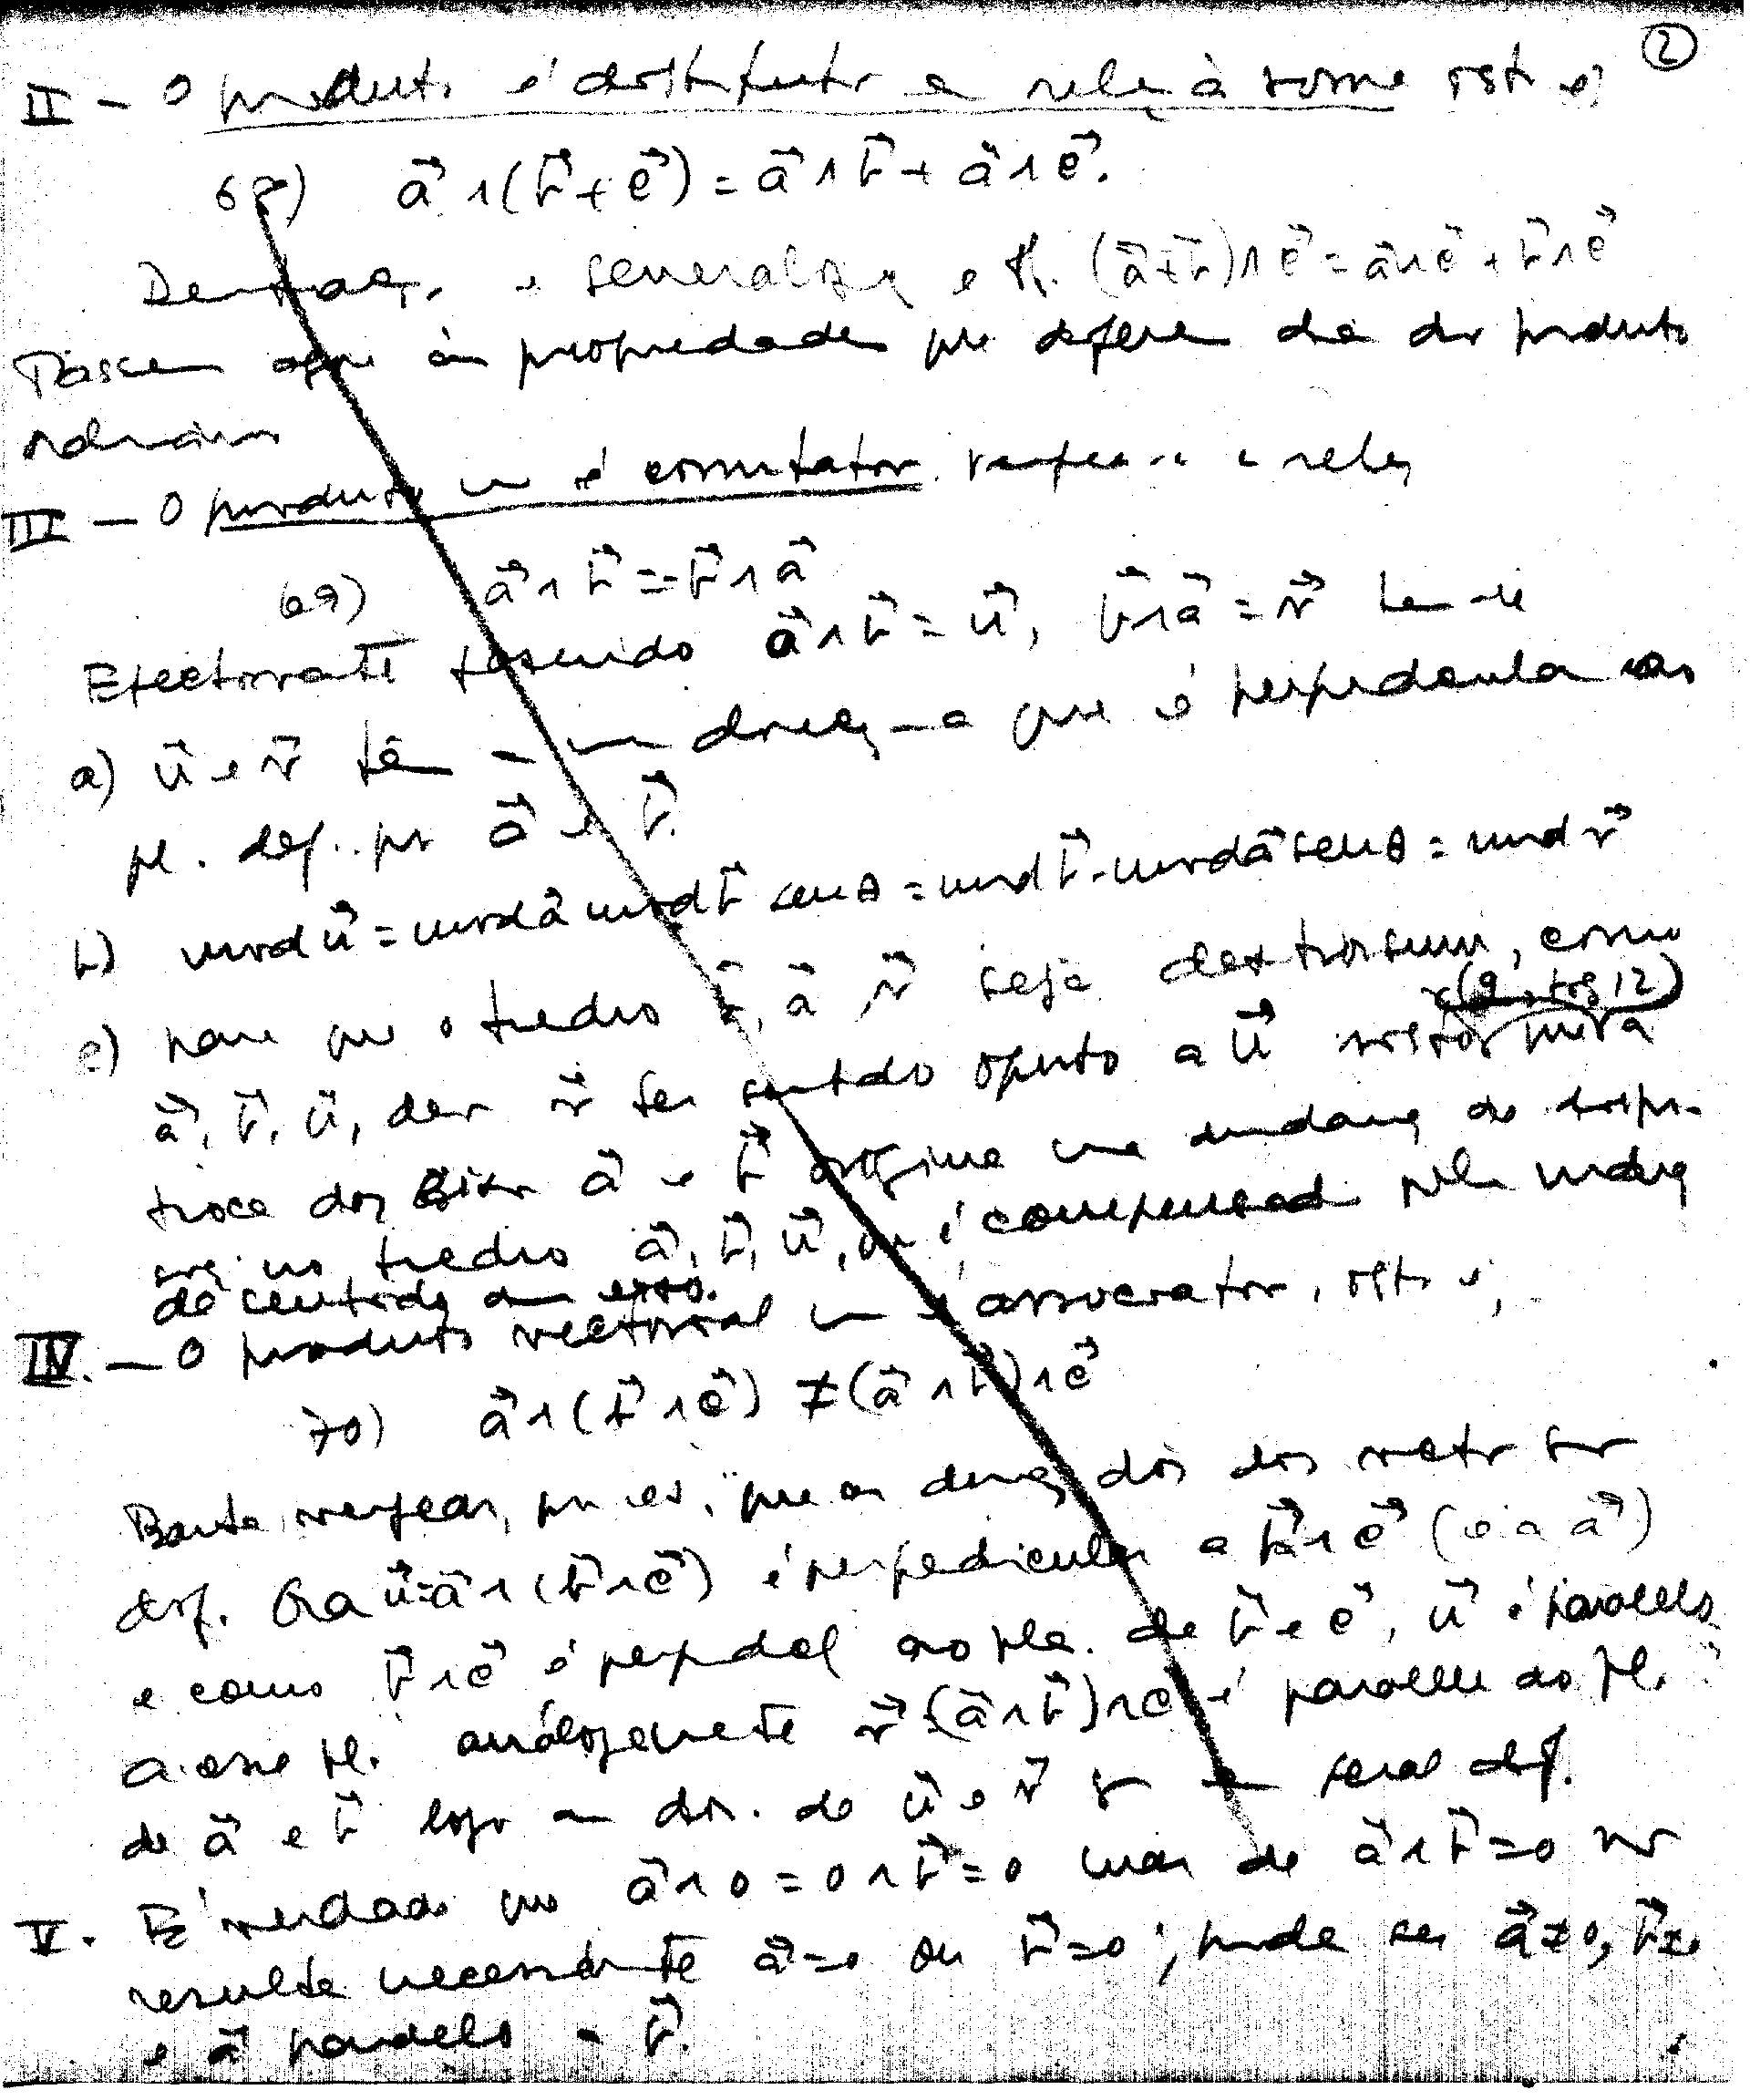 ②
II — O produto é distributivo em relação à soma isto é,
68) a⃗ ∧ (b⃗ + c⃗) = a⃗ ∧ b⃗ + a⃗ ∧ c⃗.
e (a⃗ + b⃗) ∧ c⃗ = a⃗ ∧ c⃗ + b⃗ ∧ c⃗
Passemos agora às propriedades que diferem das do produto
ordinário
III — O produto não é comutativo. a relação
69) a⃗ ∧ b⃗ = - b⃗ ∧ a⃗
Efectivamente fazendo a⃗ ∧ b⃗ = u⃗, b⃗ ∧ a⃗ = v⃗ tem-se
a) u⃗ e v⃗ têm a direcção — a que é perpendicular ao
pl. def. por a⃗ e b⃗.
b) mod u⃗ = mod a⃗ mod b⃗ sen θ = mod b⃗ . mod a⃗ sen θ = mod v⃗
c) para que o triedro b⃗, a⃗, v⃗ seja dextrorsum, como
a⃗, b⃗, u⃗, deve v⃗ ter sentido oposto a u⃗ visto a
troca dos a⃗ e b⃗ origina uma mudança de
no triedro a⃗, b⃗, u⃗, é compensada pela mudança
de sentido
IV. — O produto vectorial não é associativo, isto é,
70) a⃗ ∧ (b⃗ ∧ c⃗) ≠ (a⃗ ∧ b⃗) ∧ c⃗
Basta verificar, que as direcções dos dois vect. são
dif. Ora u⃗ = a⃗ ∧ (b⃗ ∧ c⃗) é perpendicular a b⃗ ∧ c⃗ (e a a⃗)
e como b⃗ ∧ c⃗ é ao pla. de b⃗ e c⃗, u⃗ é paralelo
a esse pl. análogamente v⃗ = (a⃗ ∧ b⃗) ∧ c⃗ é paralelo ao pl.
de a⃗ e b⃗ logo as dir. de u⃗ e v⃗ são em geral dif.
V. É verdade que a⃗ ∧ 0 = 0 ∧ b⃗ = 0 mas de a⃗ ∧ b⃗ = 0 não
resulta necessàriamente a⃗ = 0 ou b⃗ = 0; pode ser a⃗ ≠ 0, b⃗ ≠ 0
e a⃗ paralelo a b⃗.